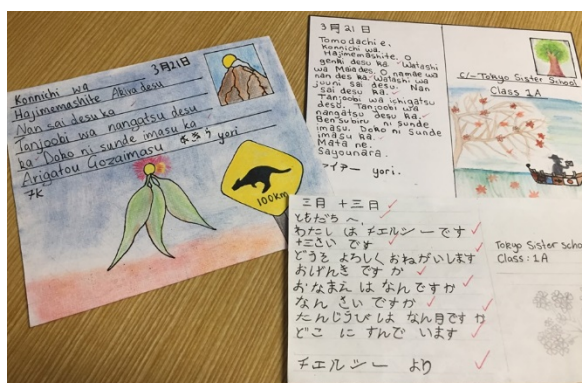 3月21日
Konnichi wa
Hajimemashite Akira desu
Nan sai desu ka
Tanjoobi wa nangatsu desu
ka Doko ni sunde imasu ka
Arigatou Gozaimasu あきら yori
7K
100km
3月21日
Tomodachi e,
Konnichi wa.
Hajimemashite. O
genki desu ka. Watashi
wa Maia des. O namae wa
nan des ka. Watashi wa
juuni sai desu. Nan
sai desu ka.
Tanjoobi wa ichigatsu
desu. Tanjoobi wa
nangatsu desu ka.
Ben Subiru ni sunde
imasu. Doko ni sunde
imasu ka.
Mata ne.
Sayounara.
マイアー yori.
C/- Tokyo Sister School
Class 1A
三月 十三日
ともだち へ,
わたし は チエルシー です
十三さい です
どうぞ よろしく おねがいします
おげんき です か
おなまえ は なんですか
なん さい ですか
たんじょうび は なん月です か
どこ に すんで います
チエルシー より
Tokyo Sister School
Class: 1A